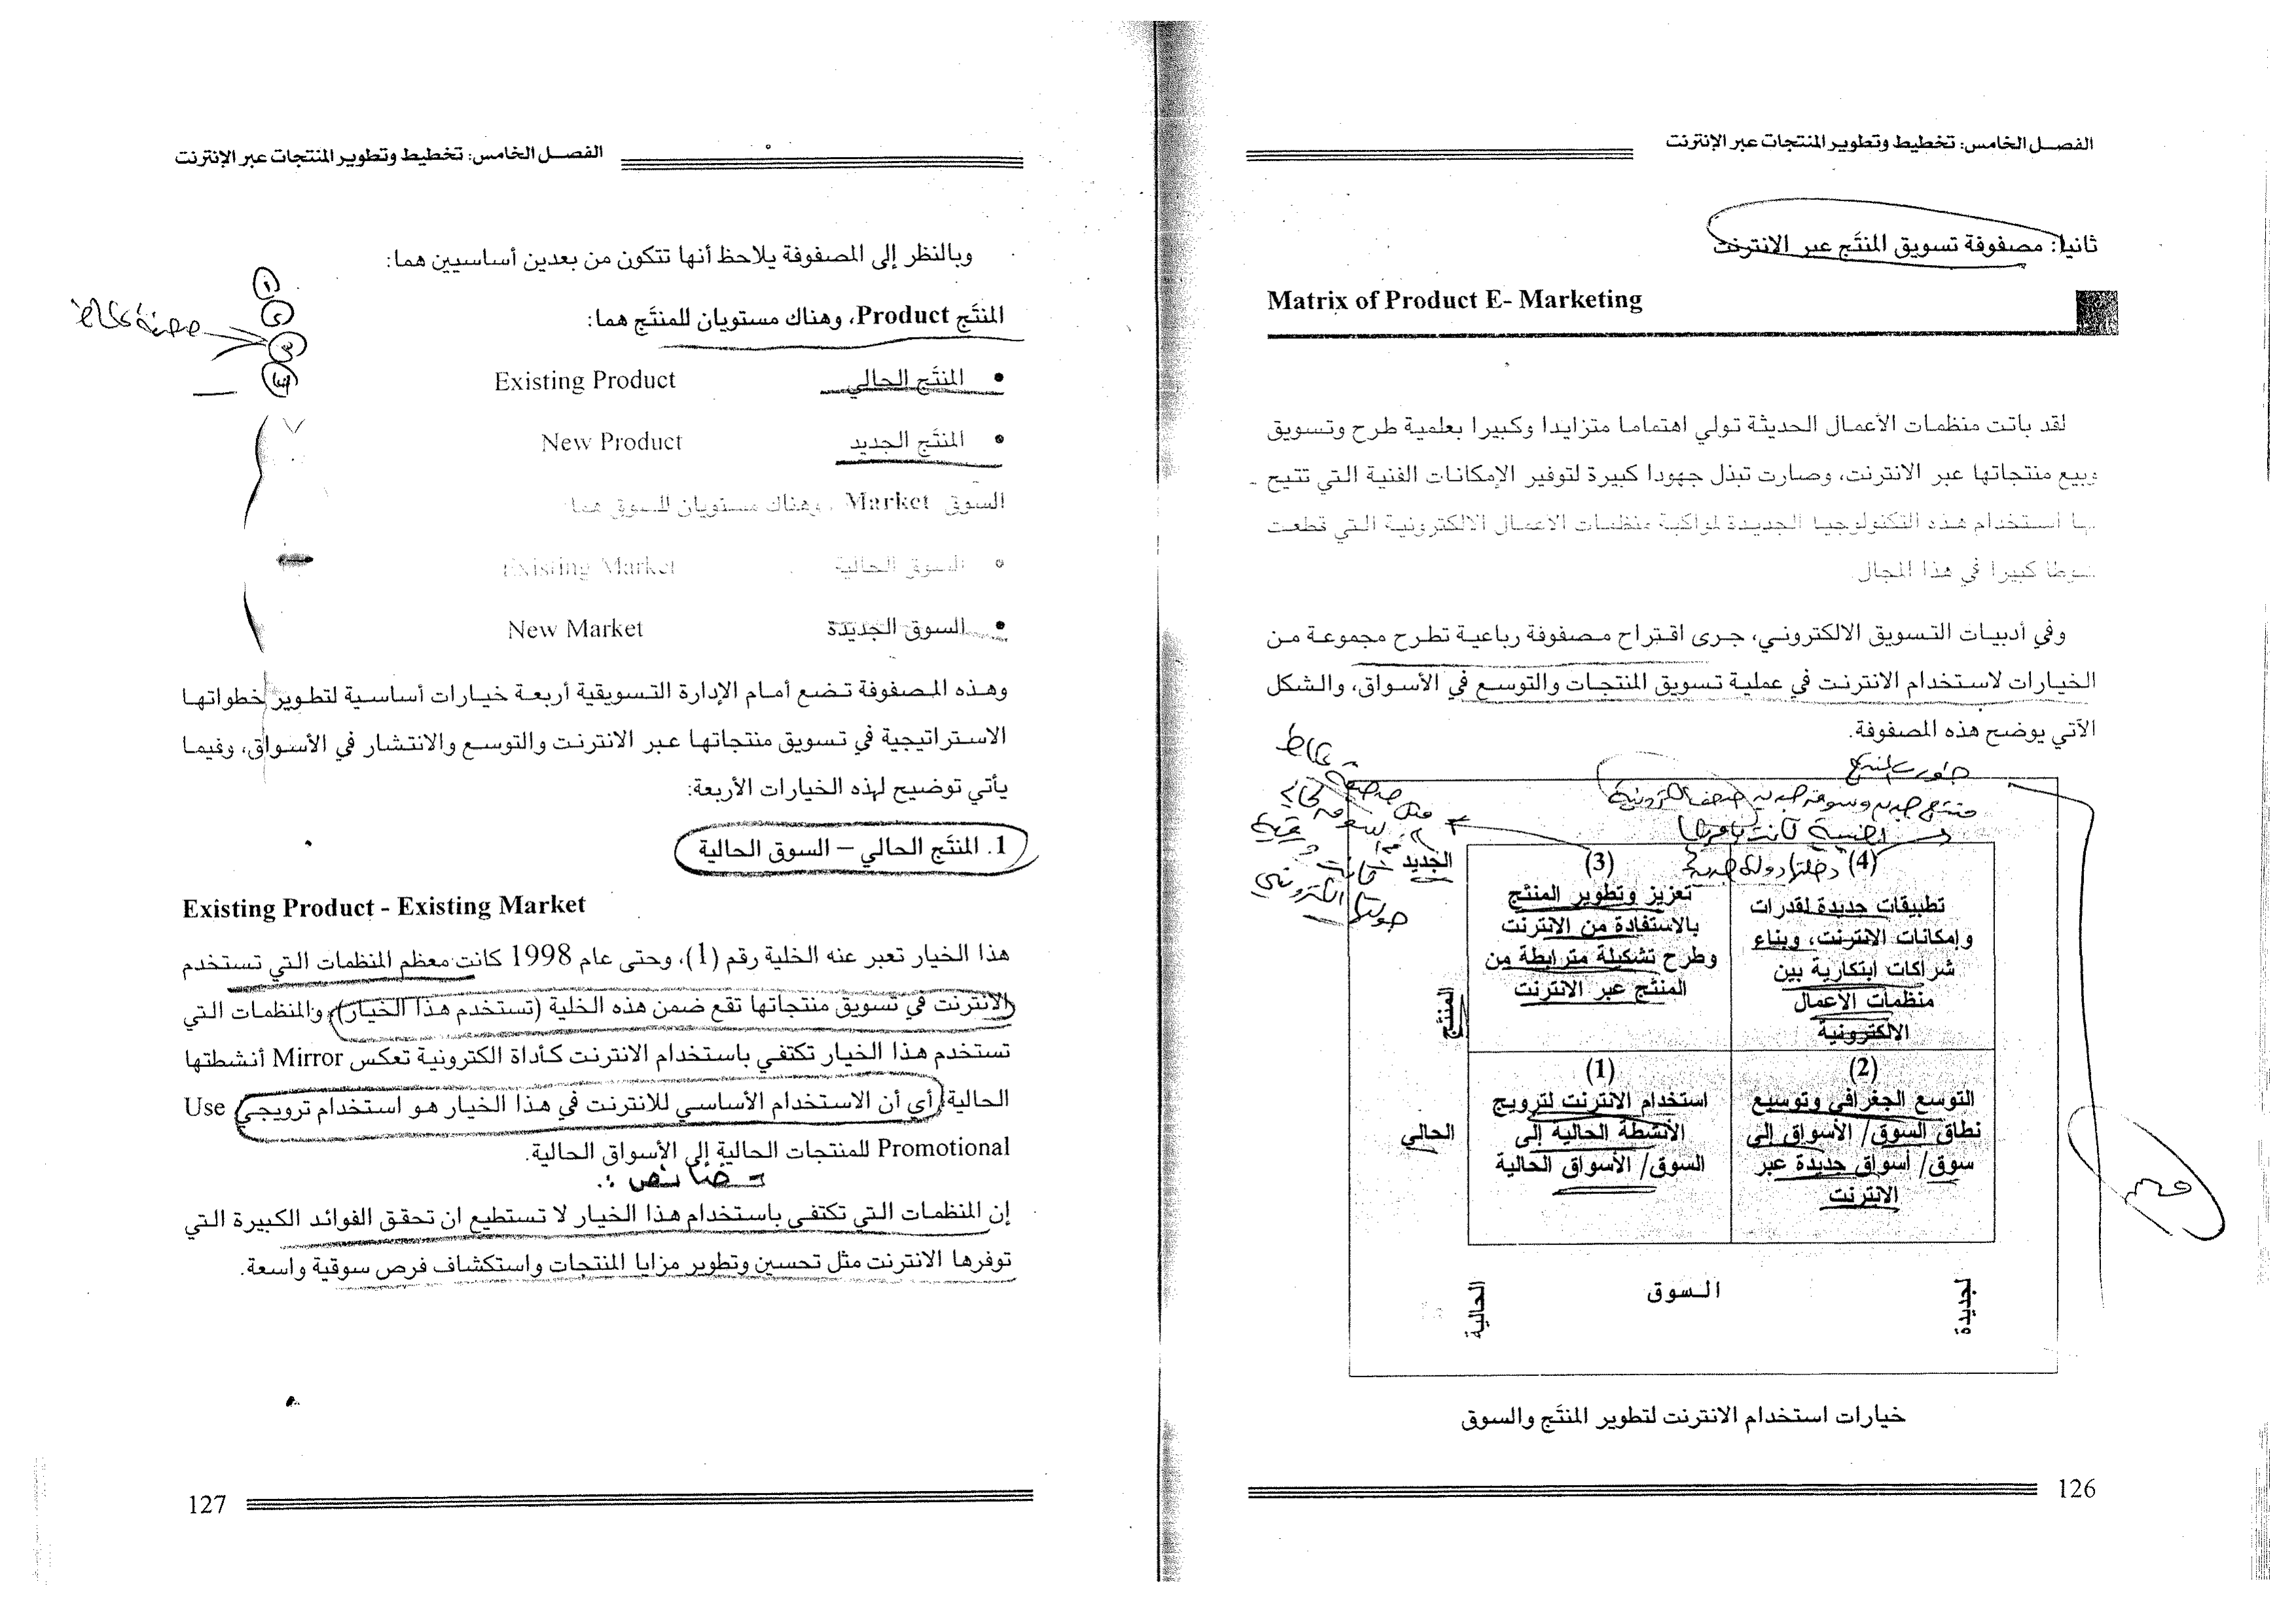 الفصل الخامس: تخطيط وتطوير المنتجات عبر الإنترنت
ثانيا: مصفوفة تسويق المنتَج عبر الانترنت
Matrix of Product E- Marketing
لقد باتت منظمات الأعمال الحديثة تولي اهتماما متزايدا وكبيرا بعلمية طرح وتسويق
وبيع منتجاتها عبر الانترنت، وصارت تبذل جهودا كبيرة لتوفير الإمكانات الفنية التي تتيح
لها استخدام هذه التكنولوجيا الجديدة لمواكبة منظمات الاعمال الالكترونية التي قطعت
شوطا كبيرا في هذا المجال.
وفي أدبيات التسويق الالكتروني، جرى اقتراح مصفوفة رباعية تطرح مجموعة من
الخيارات لاستخدام الانترنت في عملية تسويق المنتجات والتوسع في الأسواق، والشكل
الآتي يوضح هذه المصفوفة.
منتج جديد وسوق جديد صحف الكترونية
الجديد
(3)
تعزيز وتطوير المنتج
بالاستفادة من الانترنت
وطرح تشكيلة مترابطة من
المنتج عبر الانترنت
(4)
تطبيقات جديدة لقدرات
وإمكانات الانترنت، وبناء
شراكات ابتكارية بين
منظمات الاعمال
الالكترونية
المنتج
الحالي
(1)
استخدام الانترنت لترويج
الأنشطة الحالية إلى
السوق/ الأسواق الحالية
(2)
التوسع الجغرافي وتوسيع
نطاق السوق/ الأسواق إلى
سوق/ أسواق جديدة عبر
الانترنت
الحالية
السوق
لجديدة
مهم
خيارات استخدام الانترنت لتطوير المنتَج والسوق
126
الفصل الخامس: تخطيط وتطوير المنتجات عبر الإنترنت
وبالنظر إلى المصفوفة يلاحظ أنها تتكون من بعدين أساسيين هما:
المنتَج Product، وهناك مستويان للمنتَج هما:
• المنتَج الحالي Existing Product
• المنتَج الجديد New Product
السوق Market ، وهناك مستويان للسوق هما:
• السوق الحالية Existing Market
• السوق الجديدة New Market
وهذه المصفوفة تضع أمام الإدارة التسويقية أربعة خيارات أساسية لتطوير خطواتها
الاستراتيجية في تسويق منتجاتها عبر الانترنت والتوسع والانتشار في الأسواق، وفيما
يأتي توضيح لهذه الخيارات الأربعة:
1. المنتَج الحالي – السوق الحالية
Existing Product - Existing Market
هذا الخيار تعبر عنه الخلية رقم (1)، وحتى عام 1998 كانت معظم المنظمات التي تستخدم
الانترنت في تسويق منتجاتها تقع ضمن هذه الخلية (تستخدم هذا الخيار)، والمنظمات التي
تستخدم هذا الخيار تكتفي باستخدام الانترنت كأداة الكترونية تعكس Mirror أنشطتها
الحالية، أي أن الاستخدام الأساسي للانترنت في هذا الخيار هو استخدام ترويجي Use
Promotional للمنتجات الحالية إلى الأسواق الحالية.
خصائص :.
إن المنظمات التي تكتفي باستخدام هذا الخيار لا تستطيع ان تحقق الفوائد الكبيرة التي
توفرها الانترنت مثل تحسين وتطوير مزايا المنتجات واستكشاف فرص سوقية واسعة.
127